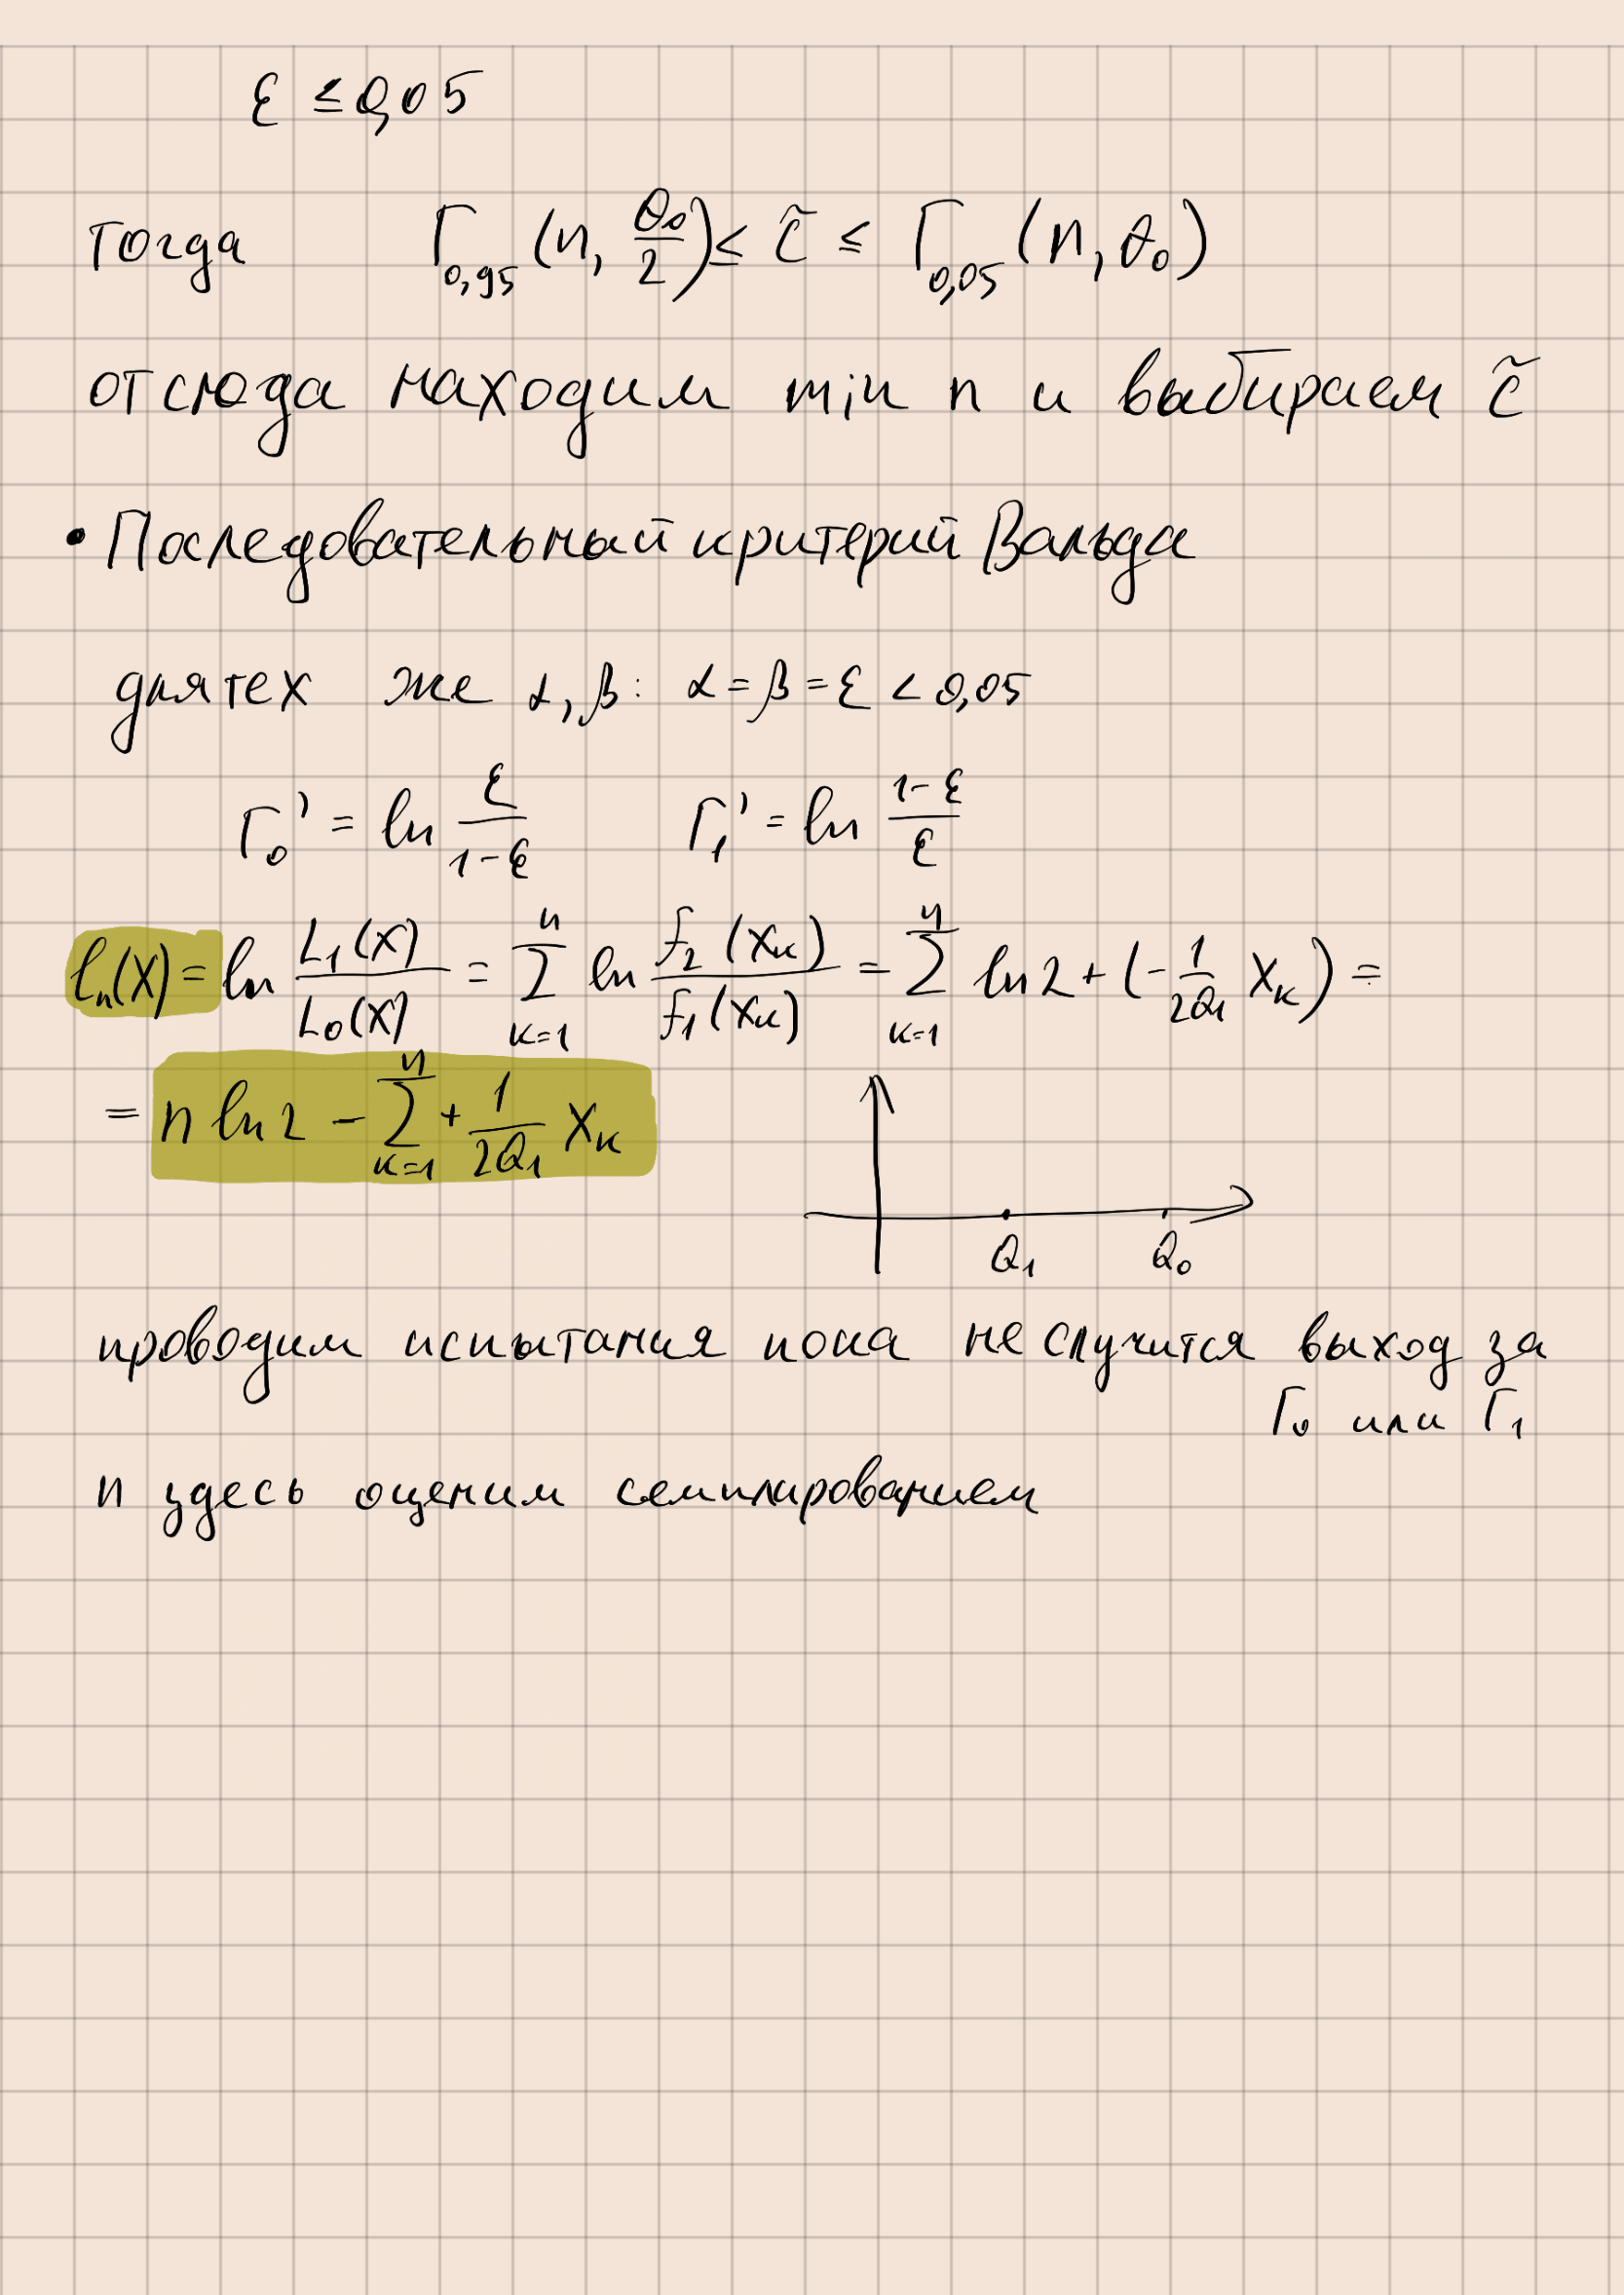 ε ≤ 0,05
тогда Γ_{0,95}(n, θ₀/2) ≤ c̃ ≤ Γ_{0,05}(n, θ₀)
отсюда находим min n и выбираем c̃
• Последовательный критерий Вальда
для тех же α, β: α = β = ε < 0,05
Γ₀' = ln ε/(1-ε) Γ₁' = ln (1-ε)/ε
lₙ(X) = ln L₁(X)/L₀(X) = Σ_{k=1}^{n} ln f₂(Xₖ)/f₁(Xₖ) = Σ_{k=1}^{n} ln 2 + (-1/(2Q₁) Xₖ) =
= n ln 2 - Σ_{k=1}^{n} + 1/(2Q₁) Xₖ
Q₁ Q₀
проводим испытания пока не случится выход за
Γ₀ или Γ₁
n здесь оценим семплированием